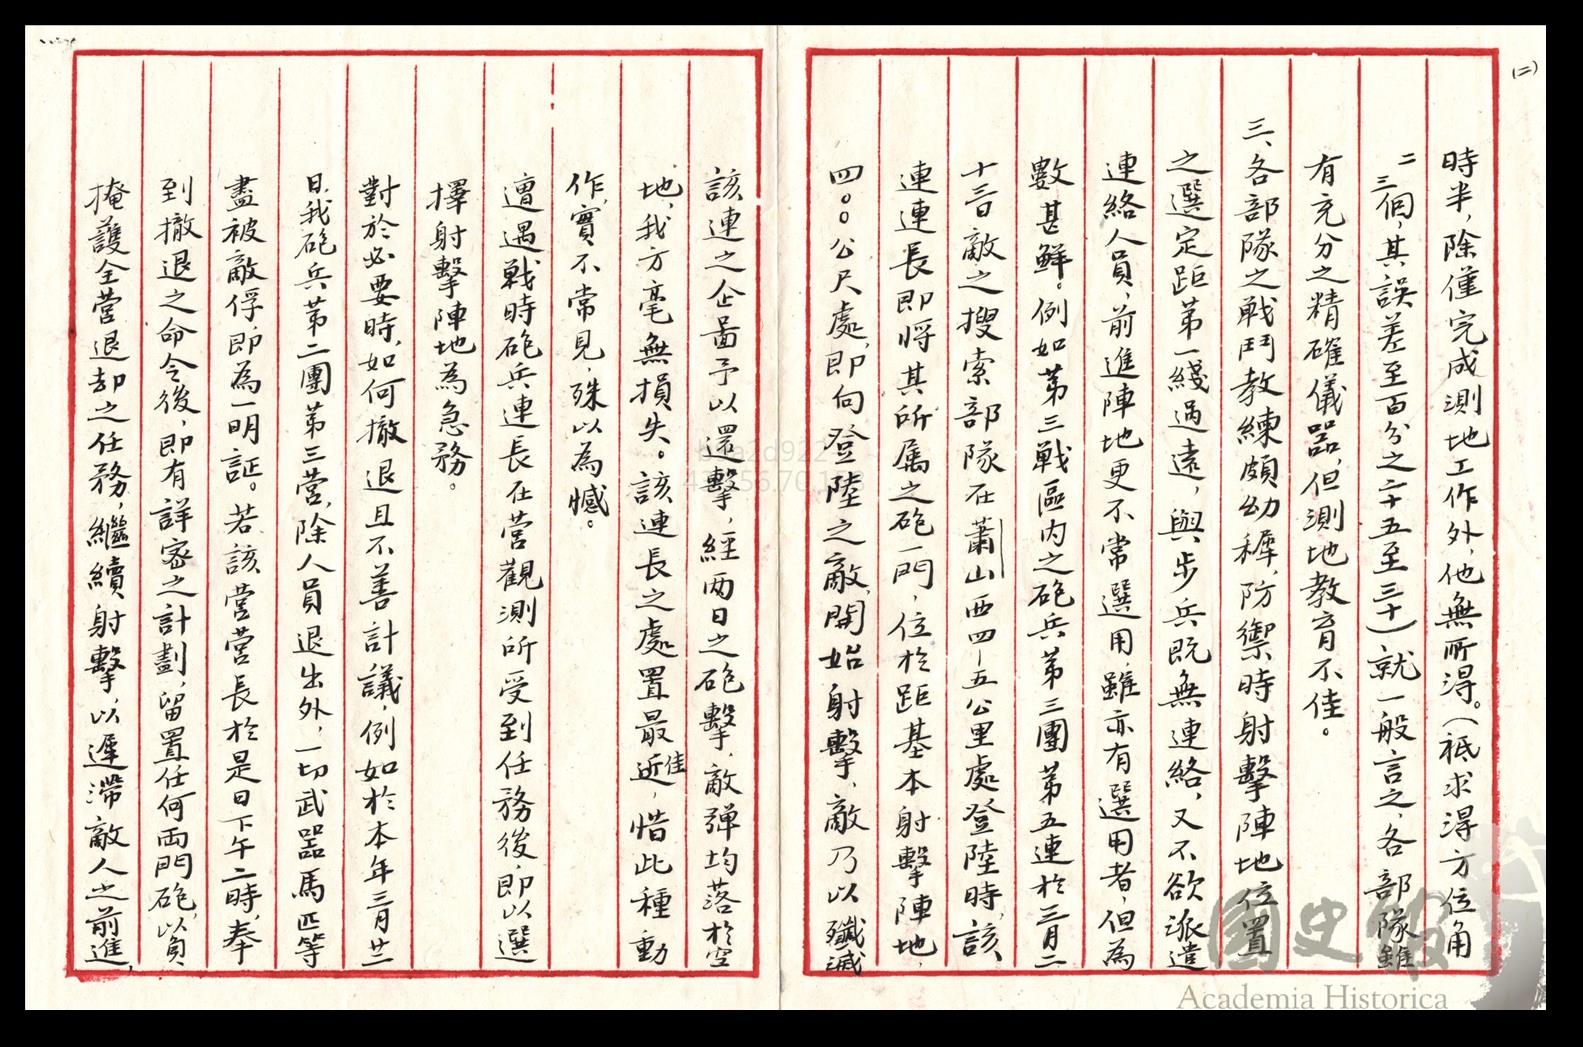 (二)
時半，除僅完成測地工作外，他無所得。（祗求得方位角
二三個，其誤差至百分之二十五至三十）就一般言之，各部隊雖
有充分之精確儀器，但測地教育不佳。
三、各部隊之戰鬥教練頗幼穉，防禦時射擊陣地位置
之選定距第一綫過遠，與步兵既無連絡，又不欲派遣
連絡人員，前進陣地更不常選用，雖亦有選用者，但為
數甚鮮。例如第三戰區內之砲兵第三團第五連於三月二
十三日敵之搜索部隊在蕭山西四－五公里處登陸時，該
連連長即將其所属之砲一門，位於距基本射擊陣地，
四〇〇公尺處，即向登陸之敵，開始射擊，敵乃以殲滅
該連之企啚予以還擊，經两日之砲擊，敵弹均落於空
地，我方毫無損失。該連長之處置最近佳，惜此種動
作，實不常見，殊以為憾。
遭遇戰時砲兵連長在营觀測所受到任務後，即以選
擇射擊陣地為急務。
對於必要時，如何撤退且不善計議，例如於本年三月廿二
日，我砲兵第二團第三营，除人員退出外，一切武器馬匹等
盡被敵俘即為一明証。若該营营長於是日下午二時，奉
到撤退之命令後，即有詳密之計劃，留置任何両門砲，以負
掩護全营退却之任務，繼續射擊，以遲滯敵人之前進，
國史館
Academia Historica